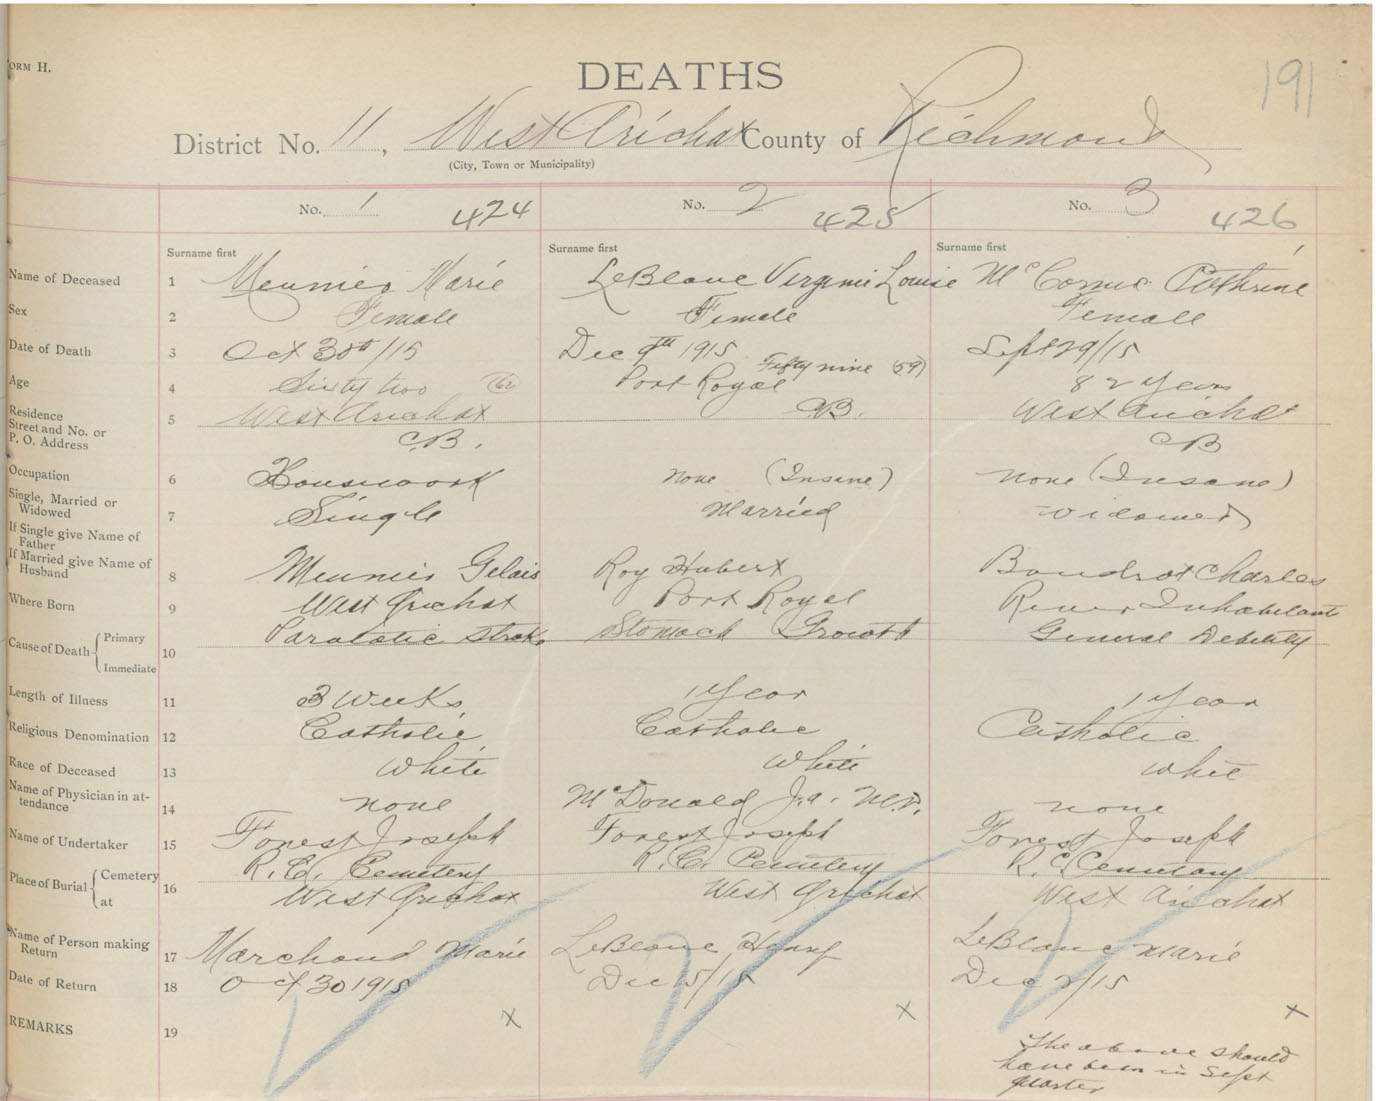 ORM H.
DEATHS
191
District No. 11, West Arichat County of Richmond
(City, Town or Municipality)
No. 1 424 No. 2 425 No. 3 426
Surname first Surname first Surname first
Name of Deceased 1 Meunier Marie LeBlanc Virginie Louise McComic Cathrine
Sex 2 Female Female Female
Date of Death 3 Oct 30th/15 Dec 9th 1915 Sept 29/15
Age 4 Sixty two (62) Fifty nine (59) 82 Years
Residence Street and No. or P. O. Address 5 West Arichat C.B. Port Royal C.B. West Arichat CB
Occupation 6 Housework none (Insane) none (Insane)
Single, Married or Widowed 7 Single Married Widowed
If Single give Name of Father
If Married give Name of Husband 8 Meunier Gelais Roy Hubert Boudrot Charles
Where Born 9 West Arichat Port Royal River Inhabitants
Cause of Death { Primary Immediate 10 Paralatic stroke Stomach Growth General Debility
Length of Illness 11 3 Weeks 1 Year 1 Year
Religious Denomination 12 Catholic Catholic Catholic
Race of Deceased 13 White White White
Name of Physician in attendance 14 none McDonald J.A. M.D. none
Name of Undertaker 15 Forest Joseph Forest Joseph Forest Joseph
Place of Burial { Cemetery at 16 R.C. Cemetery West Arichat R.C. Cemetery West Arichat R.C. Cemetary West Arichat
Name of Person making Return 17 Marchand Marie LeBlanc Henry LeBlanc Marie
Date of Return 18 Oct 30 1915 Dec 15/15 Dec /15
REMARKS 19 X X X
The above should
have been in Sept
quarter